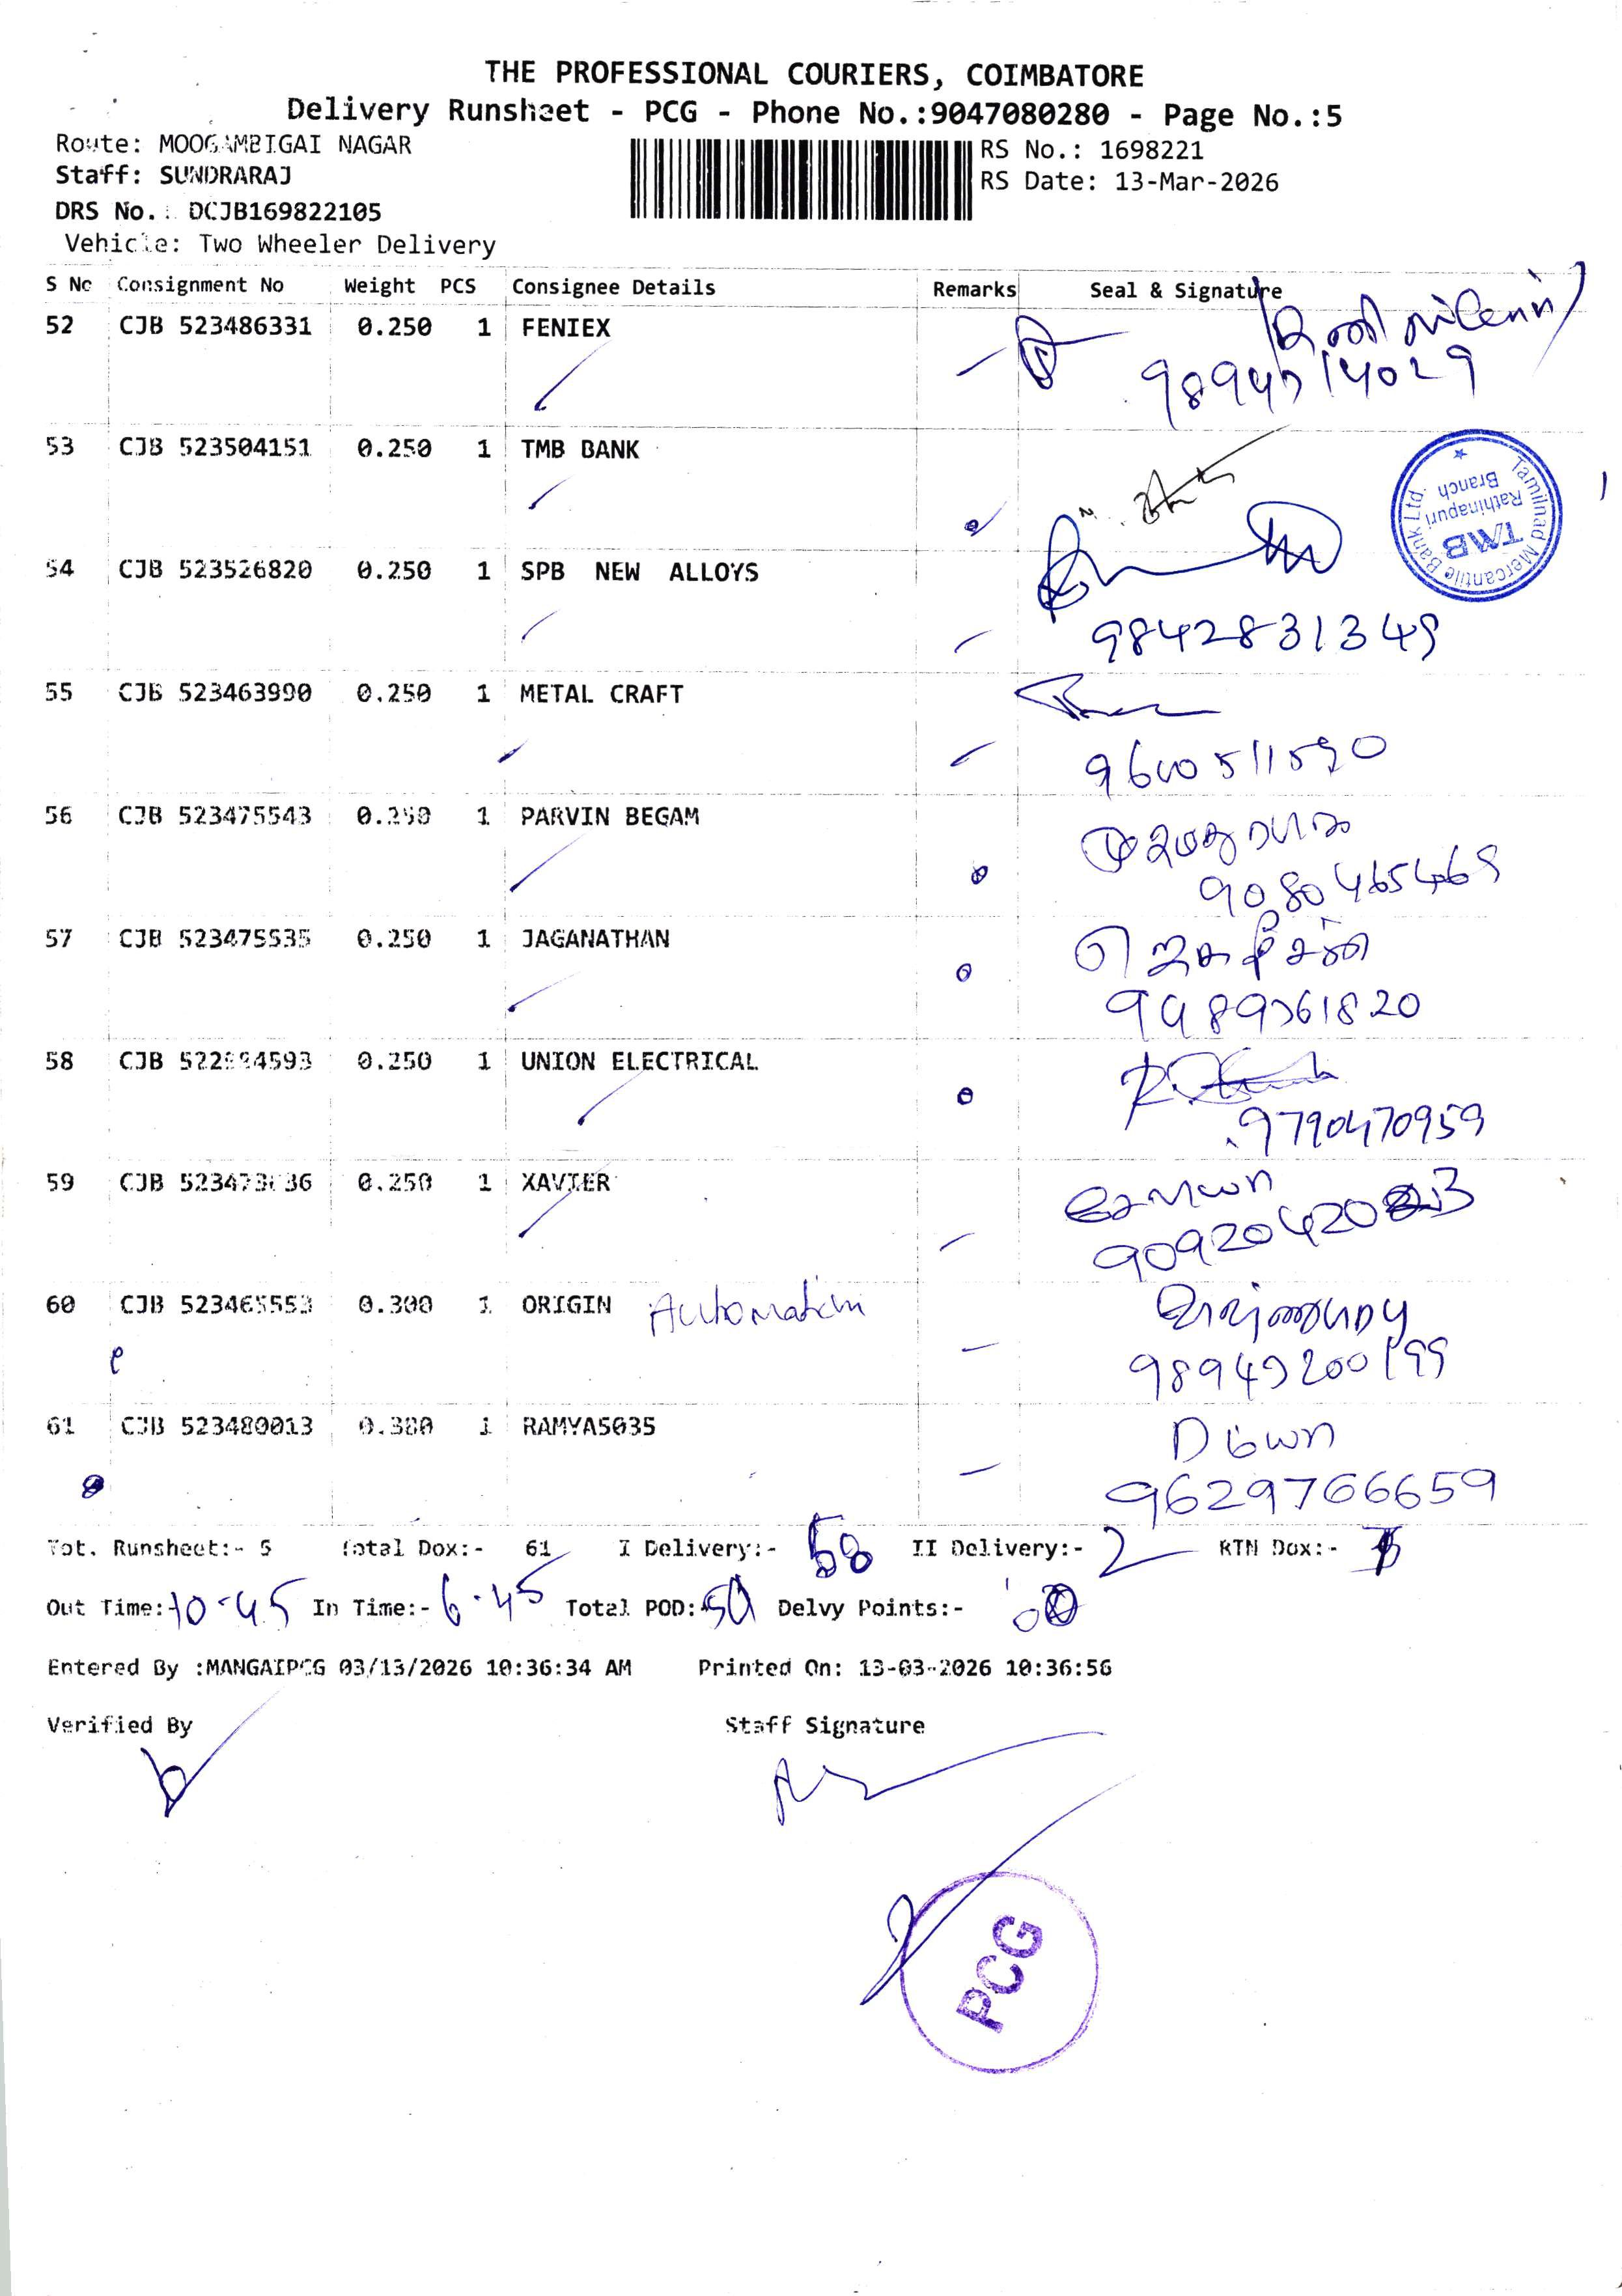 THE PROFESSIONAL COURIERS, COIMBATORE
Delivery Runsheet - PCG - Phone No.:9047080280 - Page No.:5
Route: MOOGAMBIGAI NAGAR
RS No.: 1698221
Staff: SUNDRARAJ
RS Date: 13-Mar-2026
DRS No.: DCJB169822105
Vehicle: Two Wheeler Delivery
S No Consignment No Weight PCS Consignee Details Remarks Seal & Signature
52 CJB 523486331 0.250 1 FENIEX
9894714029
53 CJB 523504151 0.250 1 TMB BANK
Tamilnad Mercantile Bank Ltd.
TMB
Rathinapuri
Branch
54 CJB 523526820 0.250 1 SPB NEW ALLOYS
9842831349
55 CJB 523463990 0.250 1 METAL CRAFT
9600511590
56 CJB 523475543 0.250 1 PARVIN BEGAM
9080465469
57 CJB 523475535 0.250 1 JAGANATHAN
9489361820
58 CJB 0.250 1 UNION ELECTRICAL
9790470959
59 CJB 0.250 1 XAVIER
60 CJB 523465553 0.300 1 ORIGIN Automation
61 CJB 523480013 0.300 1 RAMYA5035
9629766659
Tot. Runsheet:- 5 Total Dox:- 61 I Delivery:- 58 II Delivery:- 2 RTN Dox:-
Out Time:- 10-45 In Time:- 6-45 Total POD:- 50 Delvy Points:-
Entered By :MANGAIPCG 03/13/2026 10:36:34 AM Printed On: 13-03-2026 10:36:56
Verified By Staff Signature
PCG